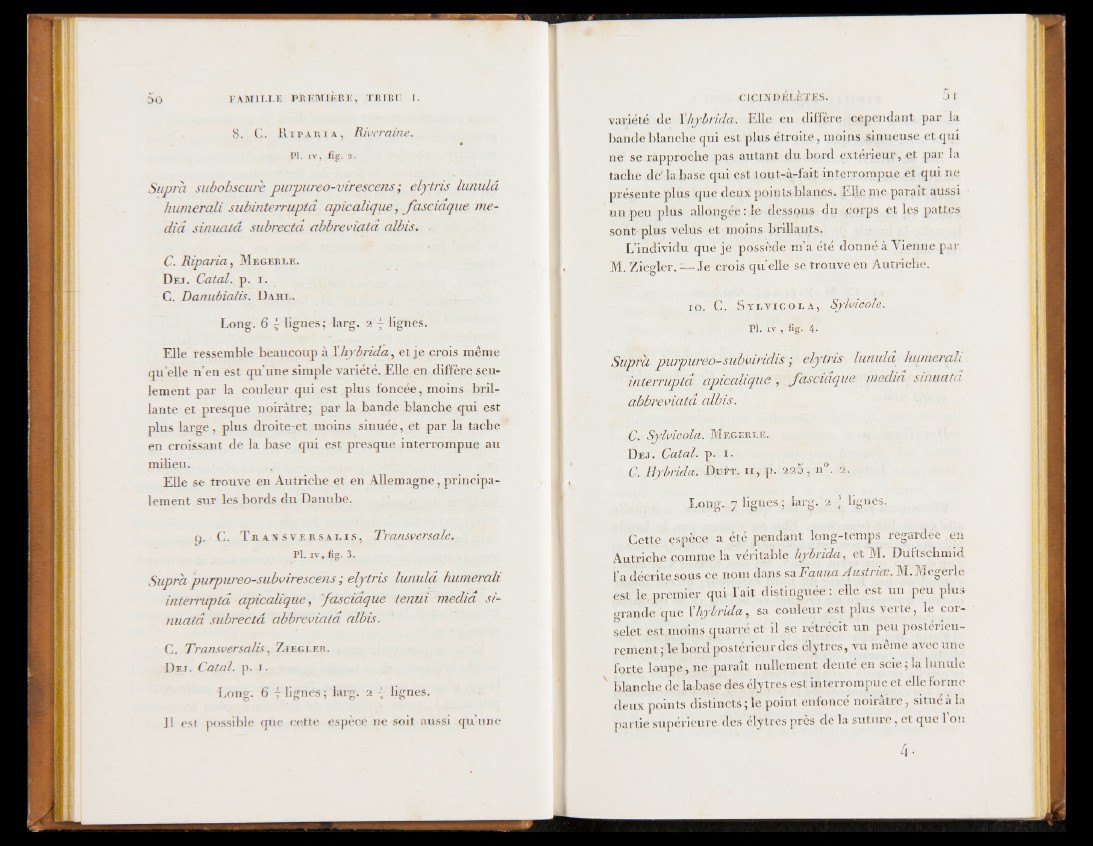 50 FAMILLE PREMIÈRE, TRIBU I.
8. C. RIPARIA, Riveraine.
Pl. IV, fig. 2.
Suprà subobscurè purpureo-virescens; elytris lunulâ
humerali subinterruptâ apicalique, fasciâque me-
diâ sinuatâ subrectâ abbreviatâ albis.
C. Riparia, MEGERLE.
DEJ. Catal. p. 1.
C. Danubialis. DAHL.
Long. 6 lignes; larg. 2 lignes.
Elle ressemble beaucoup à l'hybrida, et je crois même
qu'elle n'en est qu'une simple variété. Elle en diffère seu-
lement par la couleur qui est plus foncée, moins bril-
lante et presque noirâtre; par la bande blanche qui est
plus large, plus droite et moins sinuée, et par la tache
en croissant de la base qui est presque interrompue au
milieu.
Elle se trouve en Autriche et en Allemagne, principa-
lement sur les bords du Danube.
9. C. TRANSVERSALIS, Transversale.
Pl. IV, fig. 3.
Suprà purpureo-subvirescens; elytris lunulâ humerali
interruptâ apicalique, fasciâque tenui mediâ si-
nuatâ subrectâ abbreviatâ albis.
C. Transversalis, ZIEGLER.
DEJ. Catal. p. 1.
Long. 6 lignes; larg. 2 lignes.
Il est possible que cette espèce ne soit aussi qu'une
CICINDÉLÈTES. 51
variété de l'hybrida. Elle en diffère cependant par la
bande blanche qui est plus étroite, moins sinueuse et qui
ne se rapproche pas autant du bord extérieur, et par la
tache de la base qui est tout-à-fait interrompue et qui ne
présente plus que deux points blancs. Elle me paraît aussi
un peu plus allongée: le dessous du corps et les pattes
sont plus velus et moins brillants.
L'individu que je possède m'a été donné à Vienne par
M. Ziegler. — Je crois qu'elle se trouve en Autriche.
10. C. SYLVICOLA, Sylvicole.
Pl. IV, fig. 4.
Suprà purpureo-subviridis; elytris lunulâ humerali
interruptâ apicalique, fasciâque mediâ sinuatâ
abbreviatâ albis.
C. Sylvicola. MEGERLE.
DEJ. Catal. p. 1.
C. Hybrida. DUFT. II, p. 225, n°. 2.
Long. 7 lignes; larg. 2 lignes.
Cette espèce a été pendant long-temps regardée en
Autriche comme la véritable hybrida, et M. Duftschmid
l'a décrite sous ce nom dans sa Fauna Austriæ. M. Megerle
est le premier qui l'ait distinguée: elle est un peu plus
grande que l'hybrida, sa couleur est plus verte, le cor-
selet est moins quarré et il se rétrécit un peu postérieu-
rement; le bord postérieur des élytres, vu même avec une
forte loupe, ne paraît nullement denté en scie; la lunule
blanche de la base des élytres est interrompue et elle forme
deux points distincts; le point enfoncé noirâtre, situé à la
partie supérieure des élytres près de la suture, et que l'on
4.